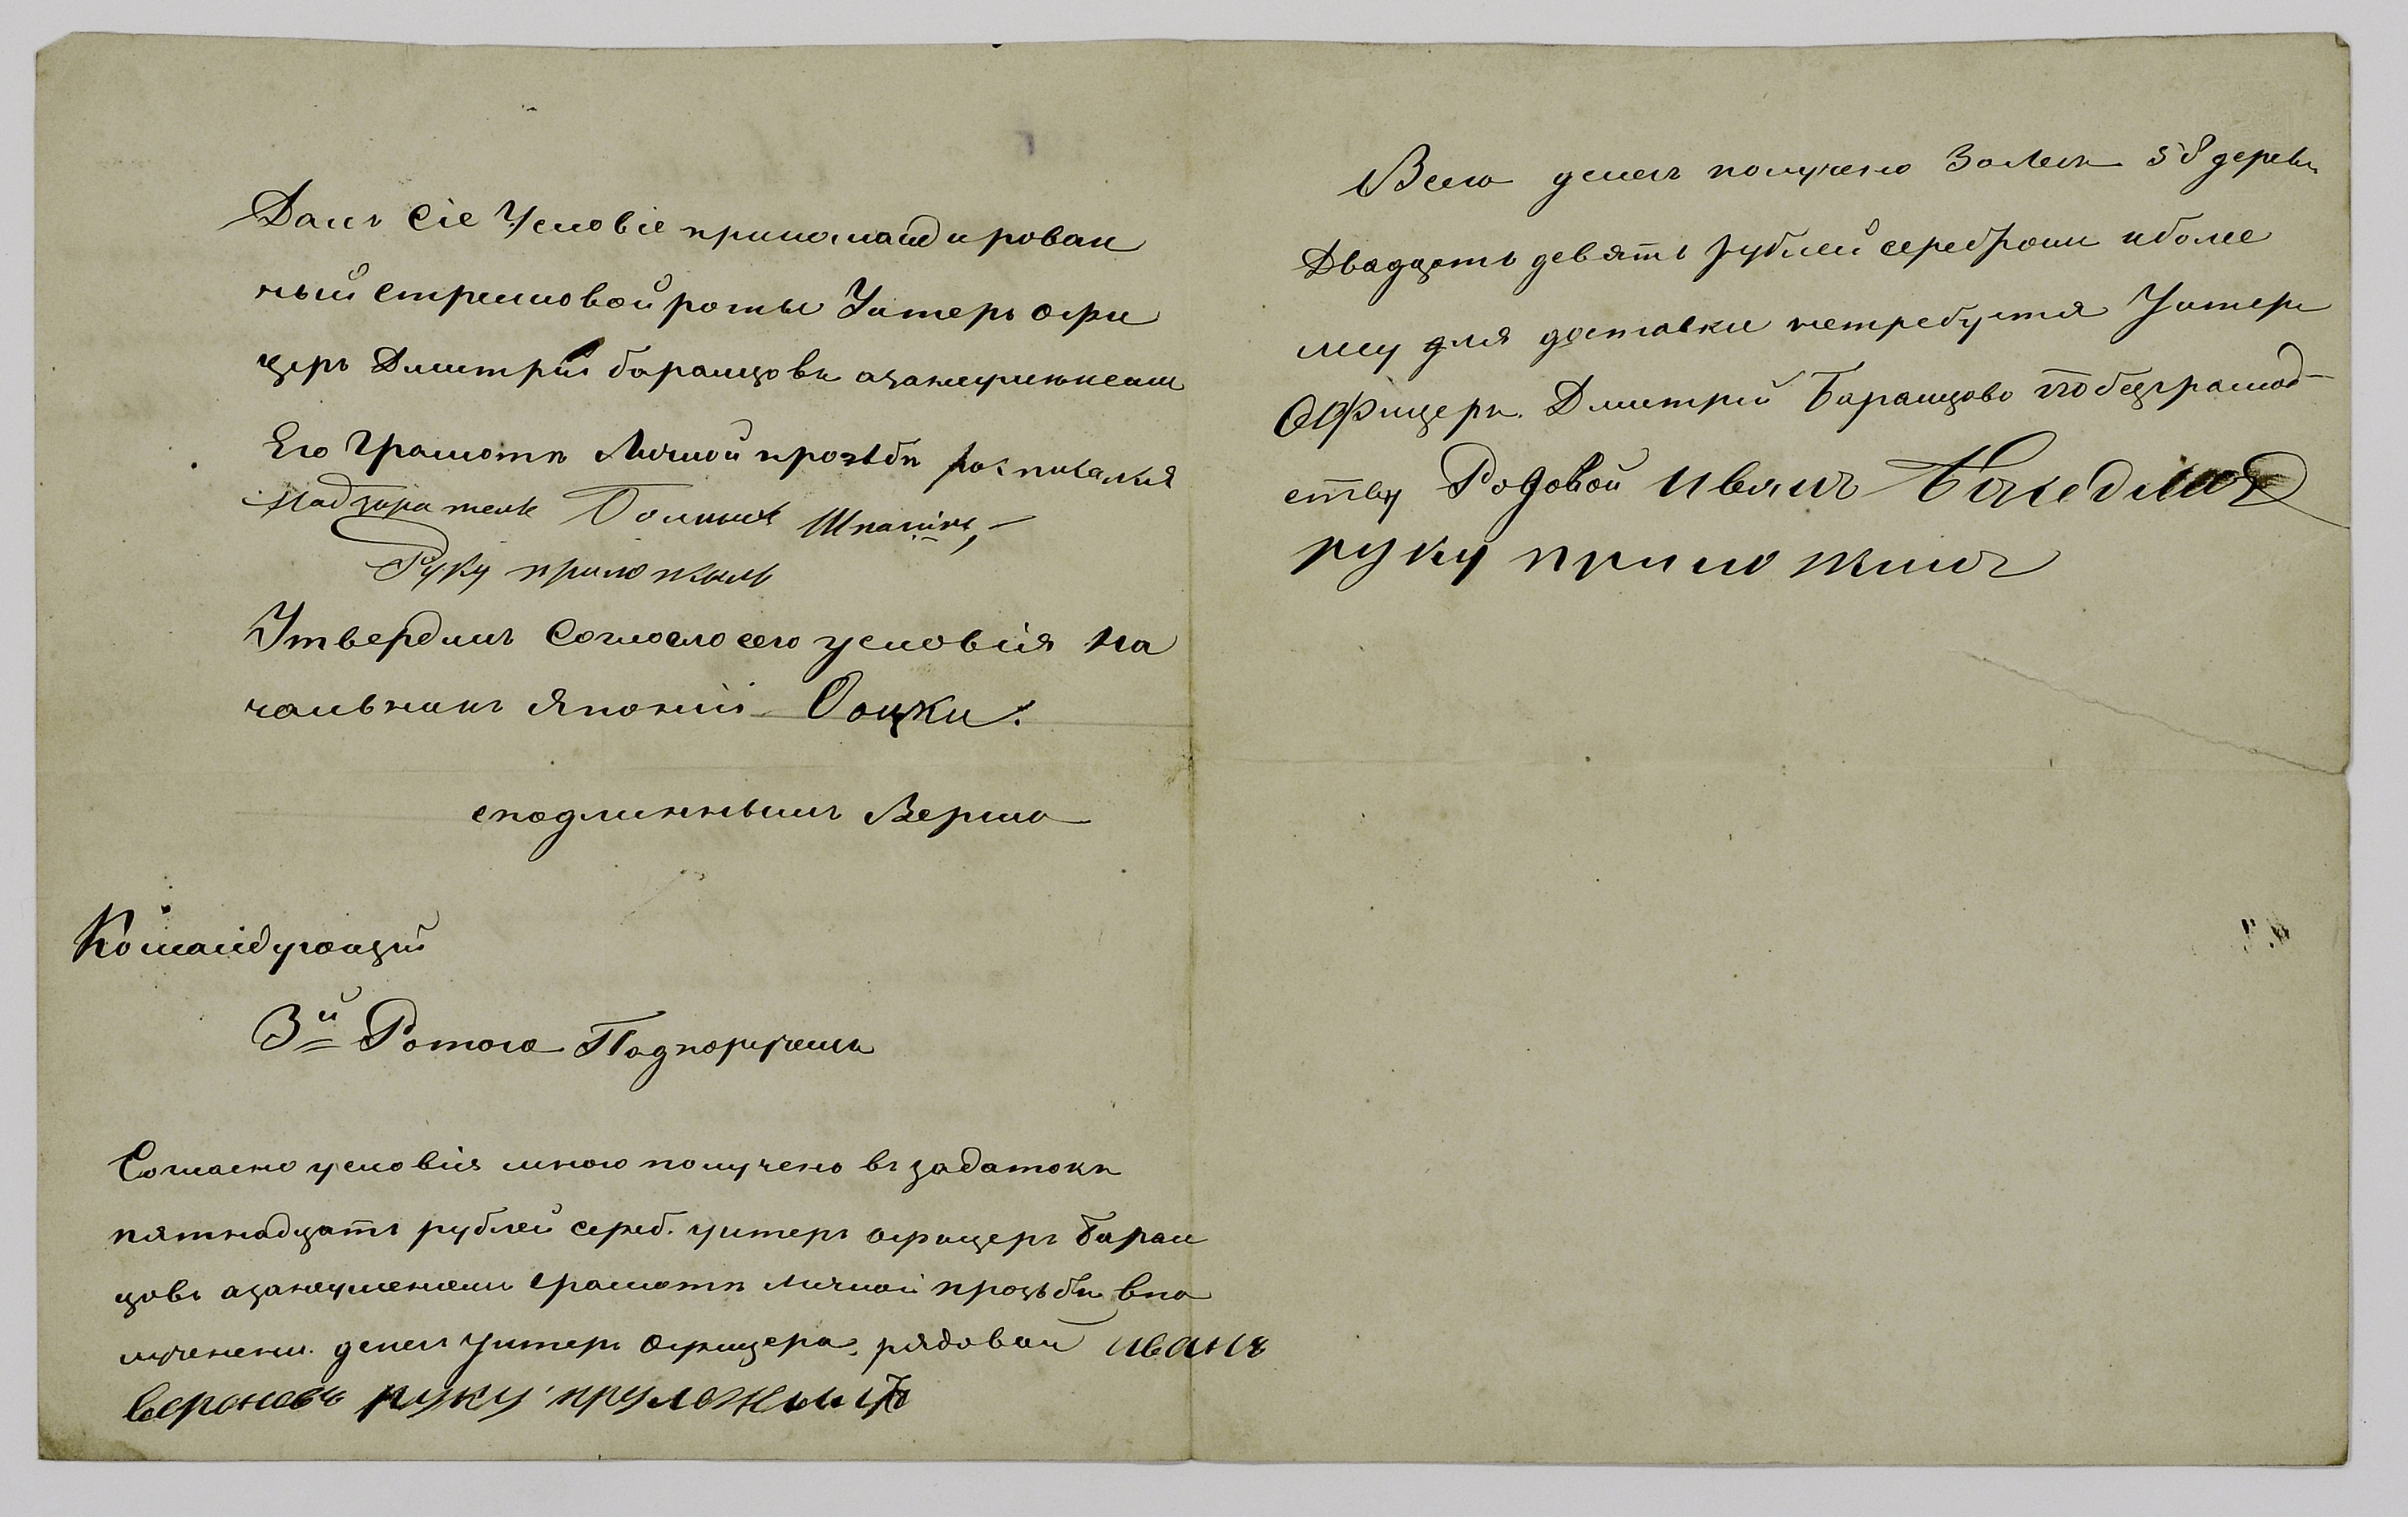 Далъ Сіе Условіе прикомандирован
ный Стрелковой роты Унтеръ офи
церъ Дмитрій баранцовъ азанеуменіемъ
Его Грамотѣ Личной прозьбѣ росписался
Надзиратель Шпанинъ,
Руку приложылъ
Утвердилъ Согласно сего условія На
чальникъ Японіи Ооцки.
сподлиннымъ Верно
Командующій
3й Ротою Подпоручикъ
Согласно условія мною получено въ задатокъ
пятнадцать рублей сереб. унтеръ офицеръ Баран
цовъ азанеуменіемъ Грамотѣ личной прозьбѣ впо
лученіи денегъ Унтеръ Офицера, рядовой иванъ
вероновъ руку прыложылъ
Всего денегъ получено Залесъ 58 деревъ
Двадцать девять рублей серебромъ иболее
му для доставки нетребуется Унтеръ
Офицеръ. Дмитрій Баранцовъ побезграмот
ству Родовой Иванъ
руку приложилъ